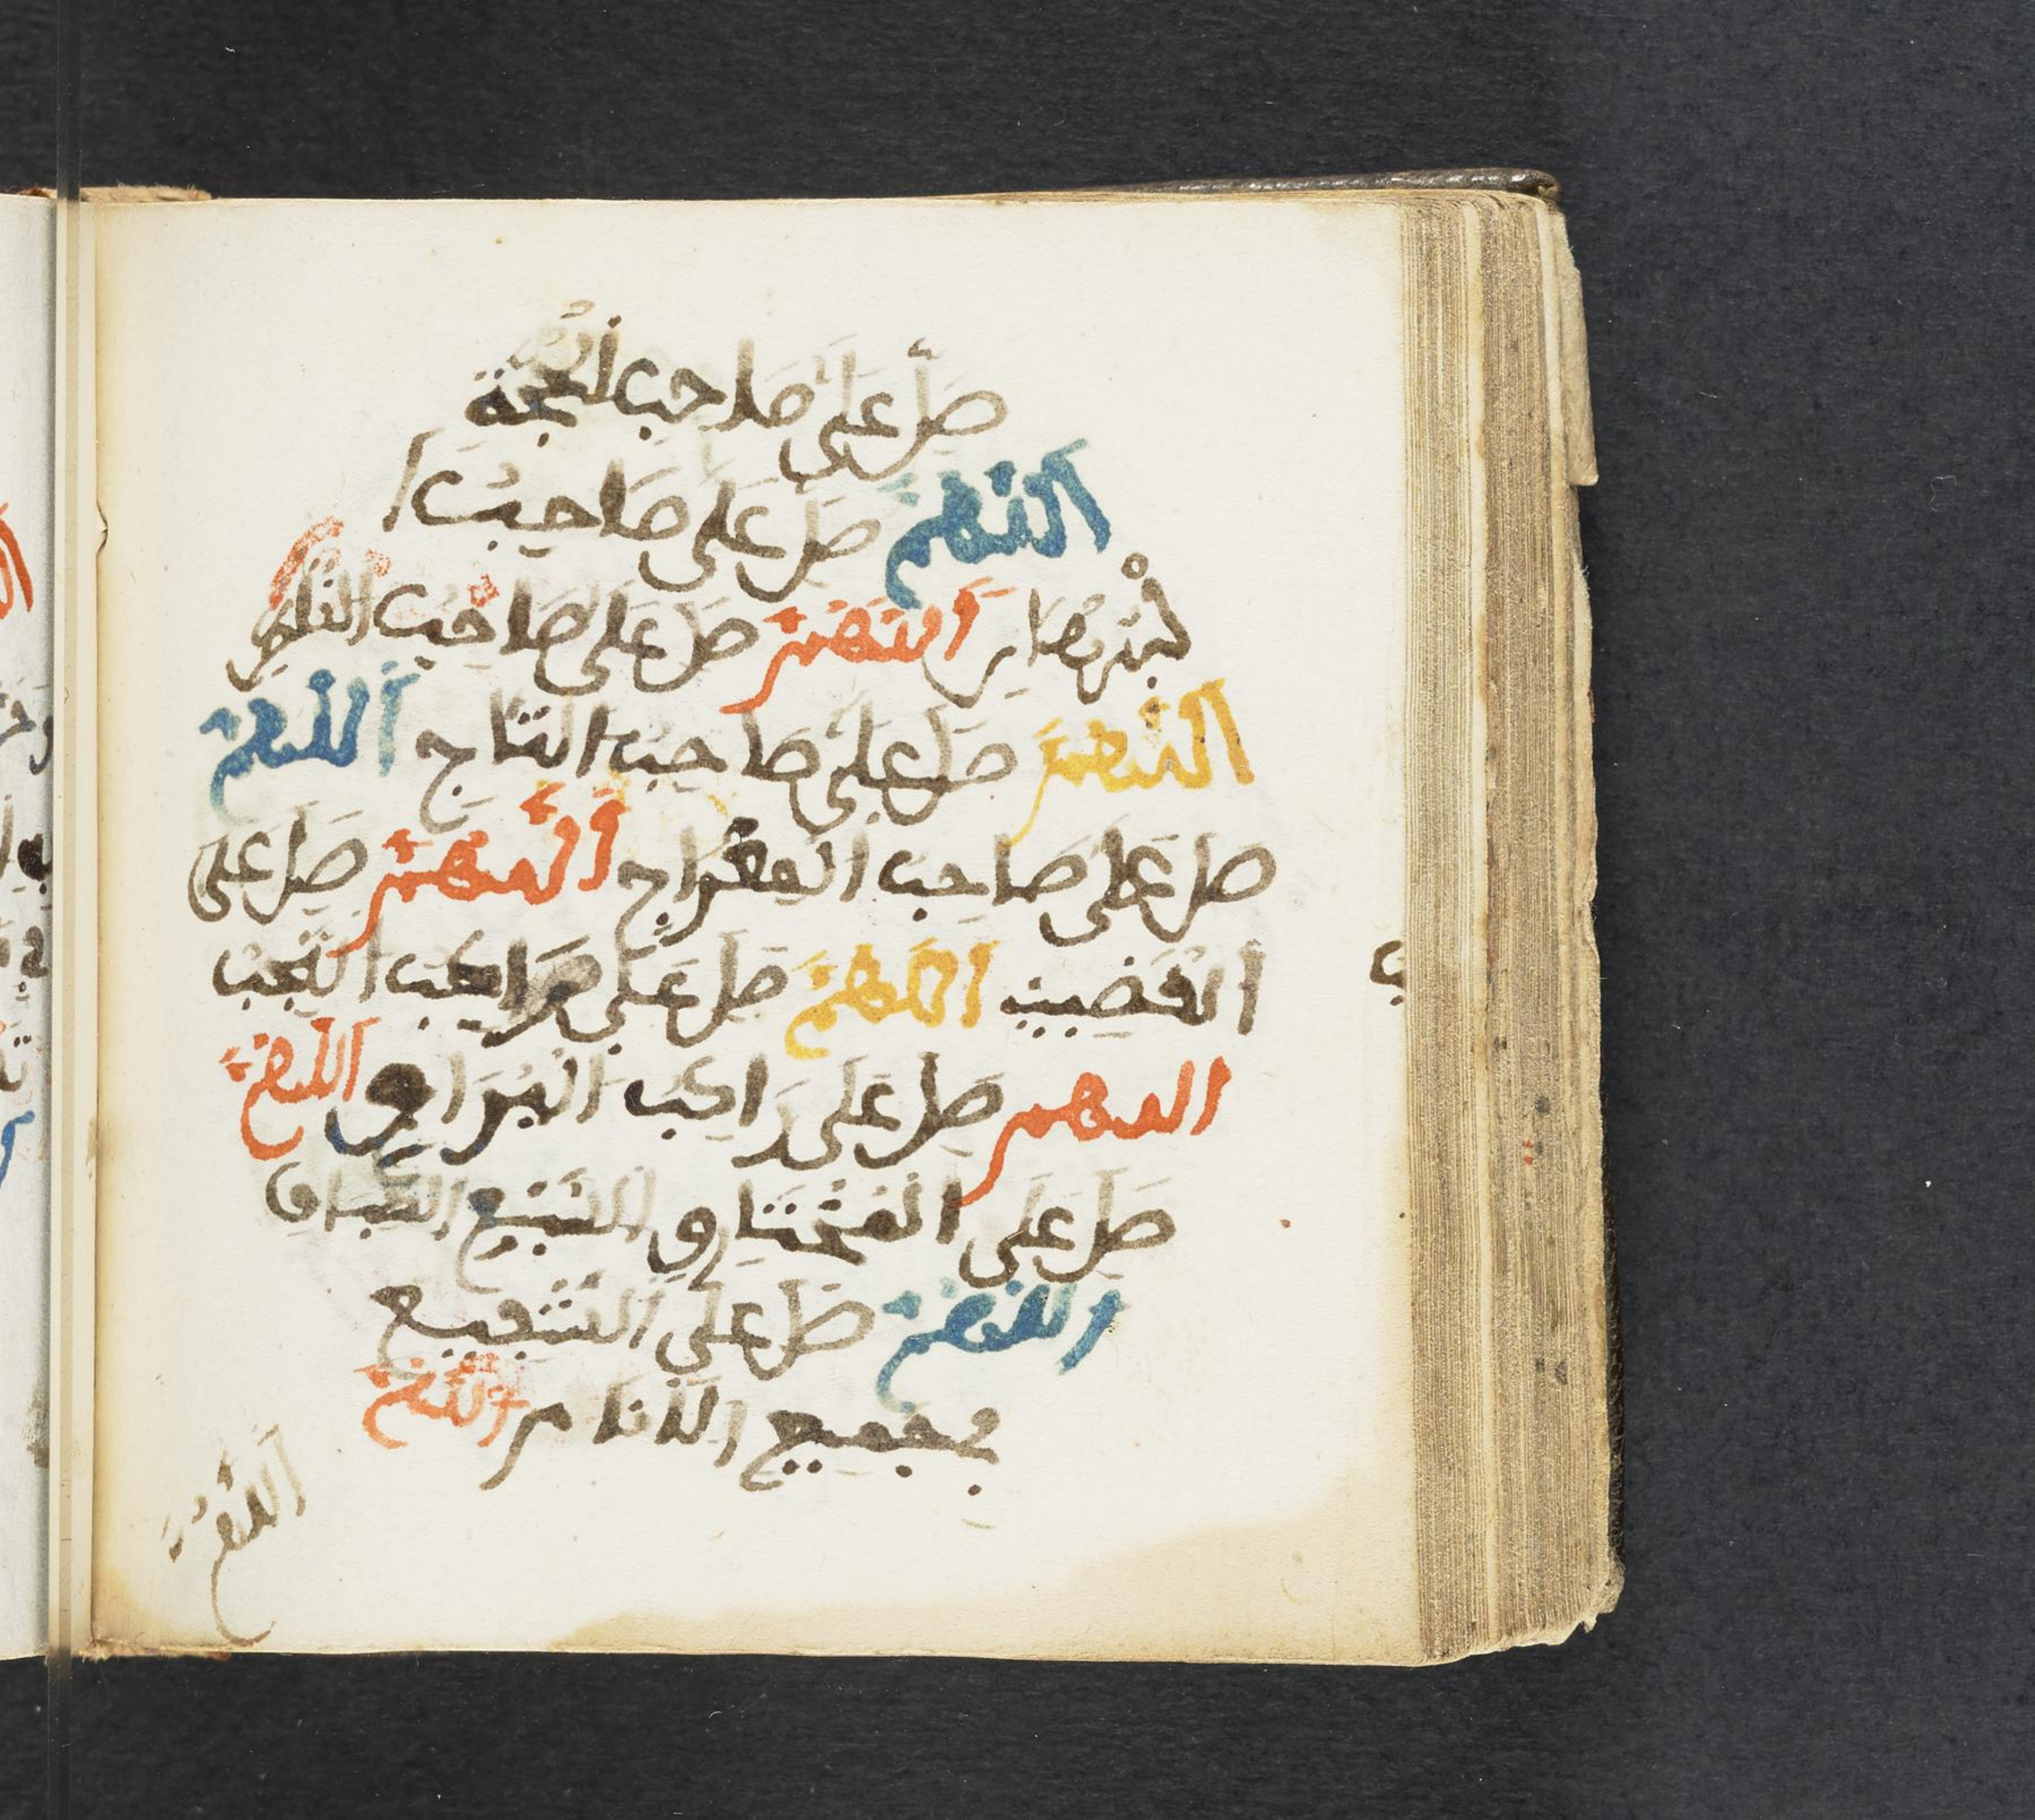 صَلِّ عَلَى صَاحِبِ الْحُجَّةِ
اللَّهُمَّ صَلِّ عَلَى صَاحِبِ ا
لْبُرْهَانِ اللَّهُمَّ صَلِّ عَلَى صَاحِبِ
اللَّهُمَّ صَلِّ عَلَى صَاحِبِ التَّاجِ اللَّهُمَّ
صَلِّ عَلَى صَاحِبِ الْمِعْرَاجِ اللَّهُمَّ صَلِّ عَلَى
الْقَضِيبِ اللَّهُمَّ صَلِّ عَلَى رَاكِبِ النَّجِيبِ
اللهم صَلِّ عَلَى رَاكِبِ الْبُرَاقِ اللَّهُمَّ
صَلِّ عَلَى الْمُخْتَرِقِ السَّبْعِ الطِّبَاقِ
اللَّهُمَّ صَلِّ عَلَى الشَّفِيعِ
فِي جَمِيعِ الْأَنَامِ اللَّهُمَّ
اللَّهُمَّ